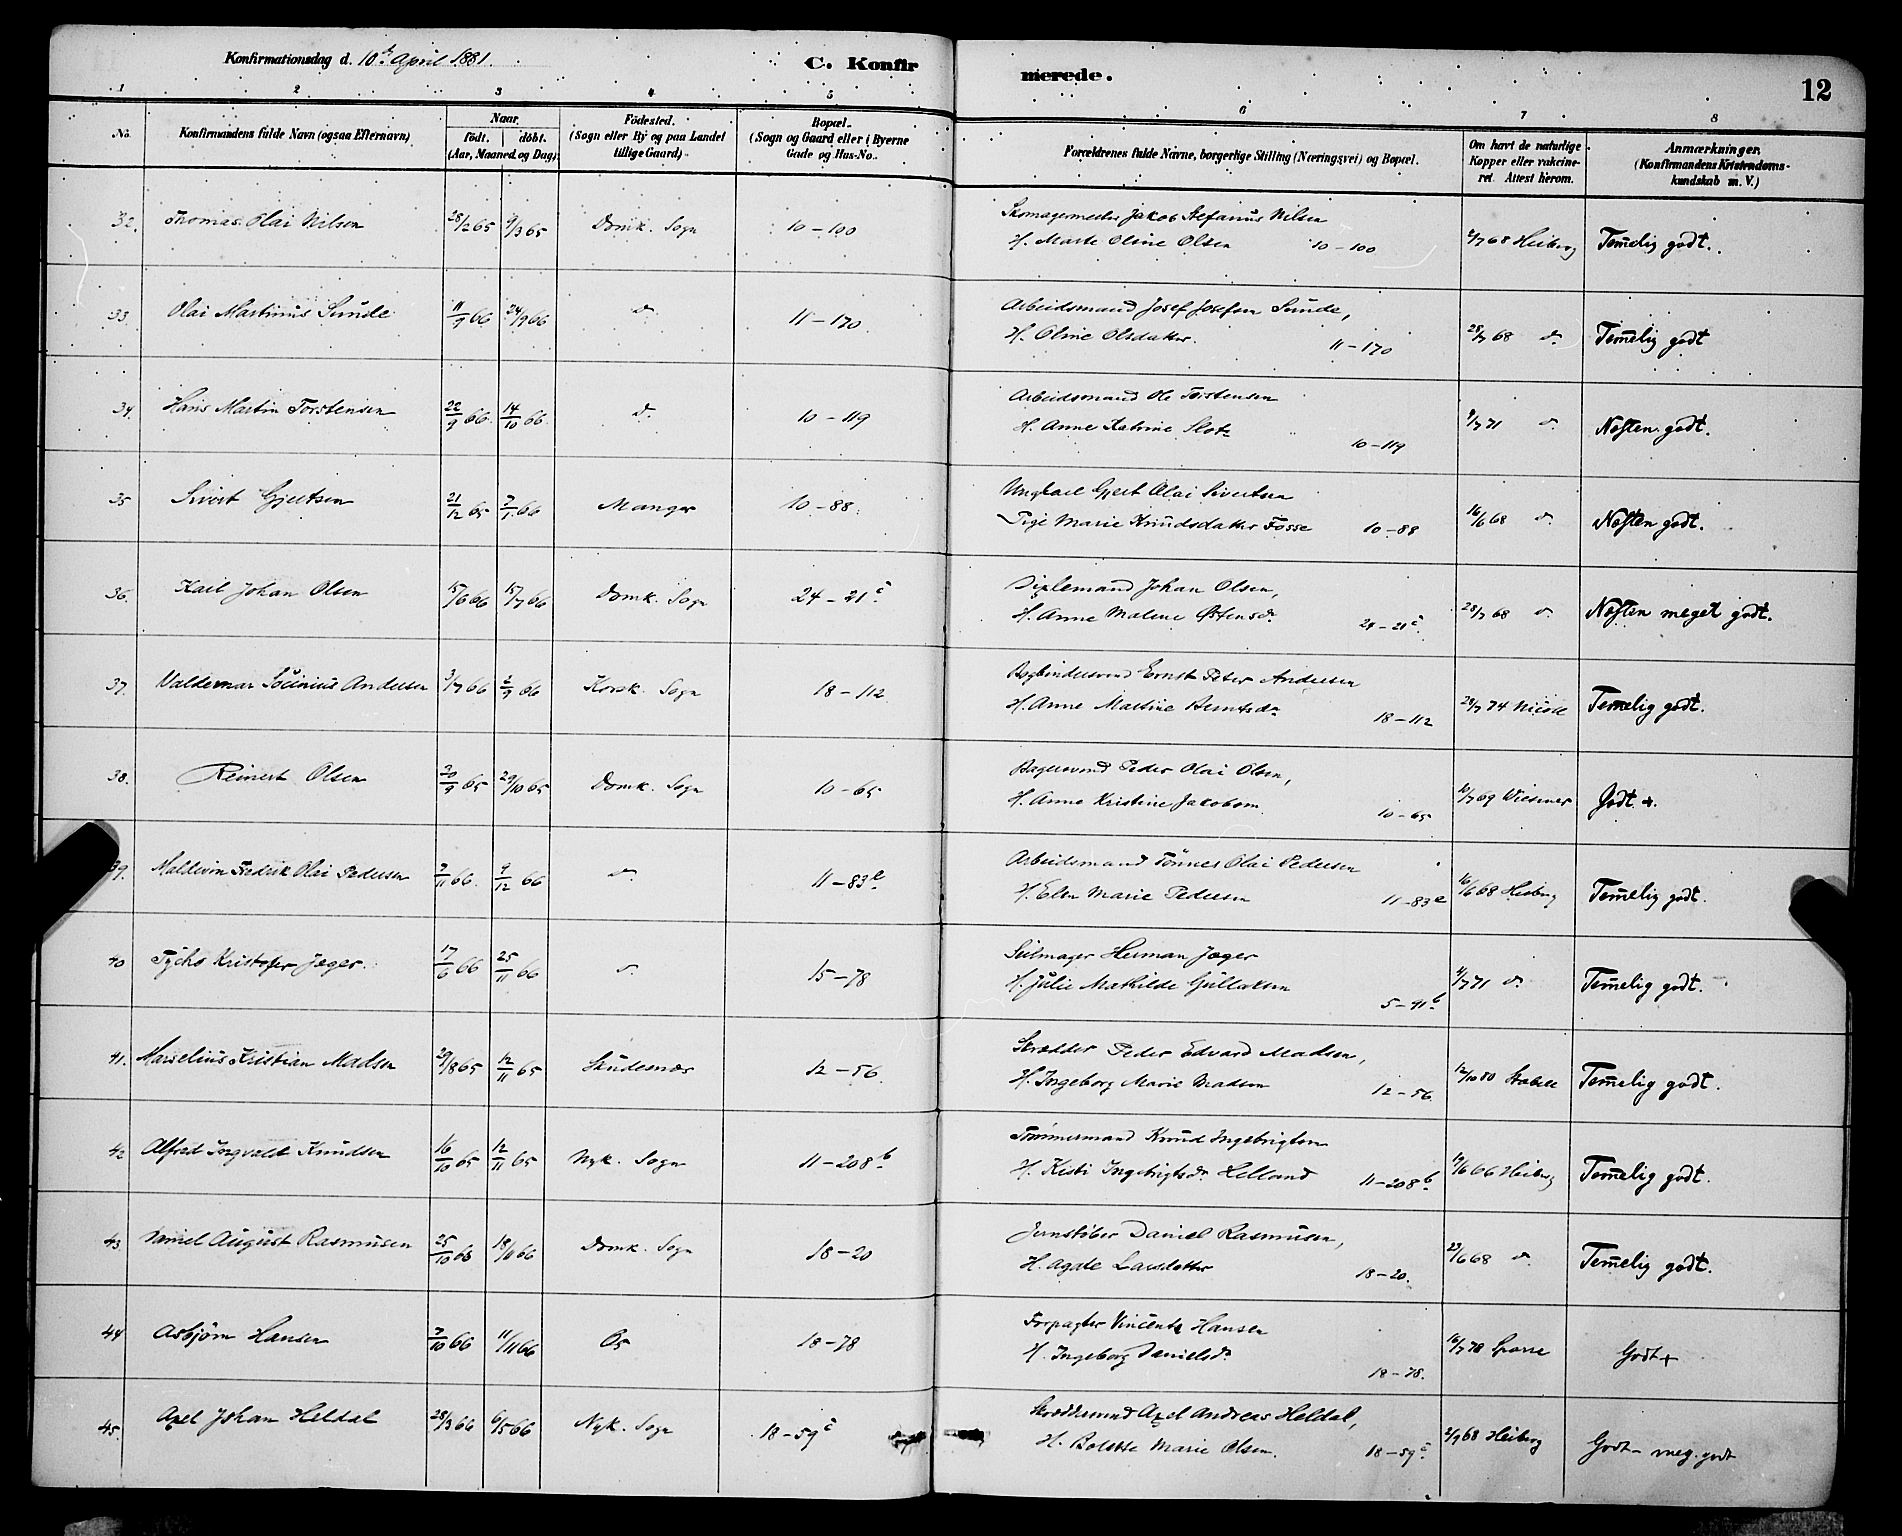 Konfirmationsdag d. 10de April 1881.
C. Konfirmerede.
12
1 2 3 4 5 6 7 8
No.
Konfirmandens fulde Navn (ogsaa Efternavn)
Naar
födt. döbt.
(Aar, Maaned og Dag)
Födested.
(Sogn eller By og paa Landet
tillige Gaard).
Bopæl.
(Sogn og Gaard eller i Byerne
Gade og Hus-No.
Forældrenes fulde Navne, borgerlige Stilling (Næringsvei) og Bopæl.
Om havt de naturlige
Kopper eller vakcine-
ret. Attest herom.
Anmærkninger.
(Konfirmandens Kristendoms-
kundskab m. V.)
32. Thomas Olai Nilsen 28/2 65 9/3 65 Domk. Sogn 10-100
Skomagermester Jakob Stefanus Nilsen
H. Marte Oline Olsen 10-100 /7 68 Heiberg Temelig godt.
33. Olai Martinus Sunde 11/9 66 24/9 66 do 11-170
Arbeidsmand Josef Josefsen Sunde,
H. Oline Olsdatter. 11-170 28/7 68 do Temelig godt
34. Hans Martin Torstensen 22/9 66 14/10 66 do 10-119
Arbeidsmand Ole Torstensen
H. Anne Katrine Slot 10-119 /7 71 do Næsten godt.
35 Sivert Gjertsen 21/12 65 7/1 66 Manger 10-88.
Ungkarl Gjert Olai Sivertsen
Pige Marie Knudsdatter Fosse 10-88 16/6 68 do Næsten godt.
36. Karl Johan Olsen 15/6 66 15/7 66 Domk. Sogn 24-21c
Johan Olsen,
H. Anne Malene Østensd. 24-21c 28/7 68 do Næsten meget godt.
37. Valdemar Andersen 3/7 66 2/9 66 Korsk. Sogn 18-112
Bogbindersvend Ernst Peter Andersen
H. Anne Martine Berntsd. 18-112 /7 74 Temelig godt.
38. Reinert Olsen 20/9 65 29/10 65 Domk. Sogn 10-65
Bagersvend Peder Olai Olsen,
H. Anne Kristine Jakobsen 10-65 10/7 69 Wiesener Godt +.
39. Fredrik Olai Pedersen 7/11 66. 9/12 66 do 11-83e
Arbeidsmand Tönnes Olai Pedersen
H. Elen Marie Pedersen 11-83e 16/6 68 Heiberg Temelig godt.
40 Tycho Kristofer Jæger. 17/6 66 25/11 66 do 15-78
Seilmager Herman Jæger
H. Julie Mathilde Gullaksen 5-41b /7 71 do Temelig godt.
41. Marselius Kristian Madsen 29/8 65 12/11 65 Skudesnæs 12-56.
Skrædder Peder Edvard Madsen,
H. Ingeborg Marie Madsen 12-56. 12/10 80 Stabell Temelig godt.
42 Alfred Ingvald Knudsen 16/10 65 12/11 65 Nyk. Sogn 11-208b
Tømmermand Knud Ingebrigtsen
H. Kisti Ingebrigtsd. Helland 11-208b /6 66 Heiberg Temelig godt.
43. Daniel August Rasmusen 25/10 66 18/11 66 Domk. Sogn 18-20
Jernstøber Daniel Rasmusen,
H. Agate Larsdatter 18-20. 23/6 68 do Temelig godt.
44 Asbjörn Hansen 7/10 66 11/11 66 Os 18-78
Forpagter Vincent Hansen
H. Ingeborg Danielsd. 18-78. 16/7 78 Godt +
45. Axel Johan Heldal 28/3 66 6/5 66 Nyk. Sogn 18-59c
Skræddersvend Axel Andreas Heldal,
H. Bolette Marie Olsen. 18-59c /9 68 Heiberg Godt - meg. godt